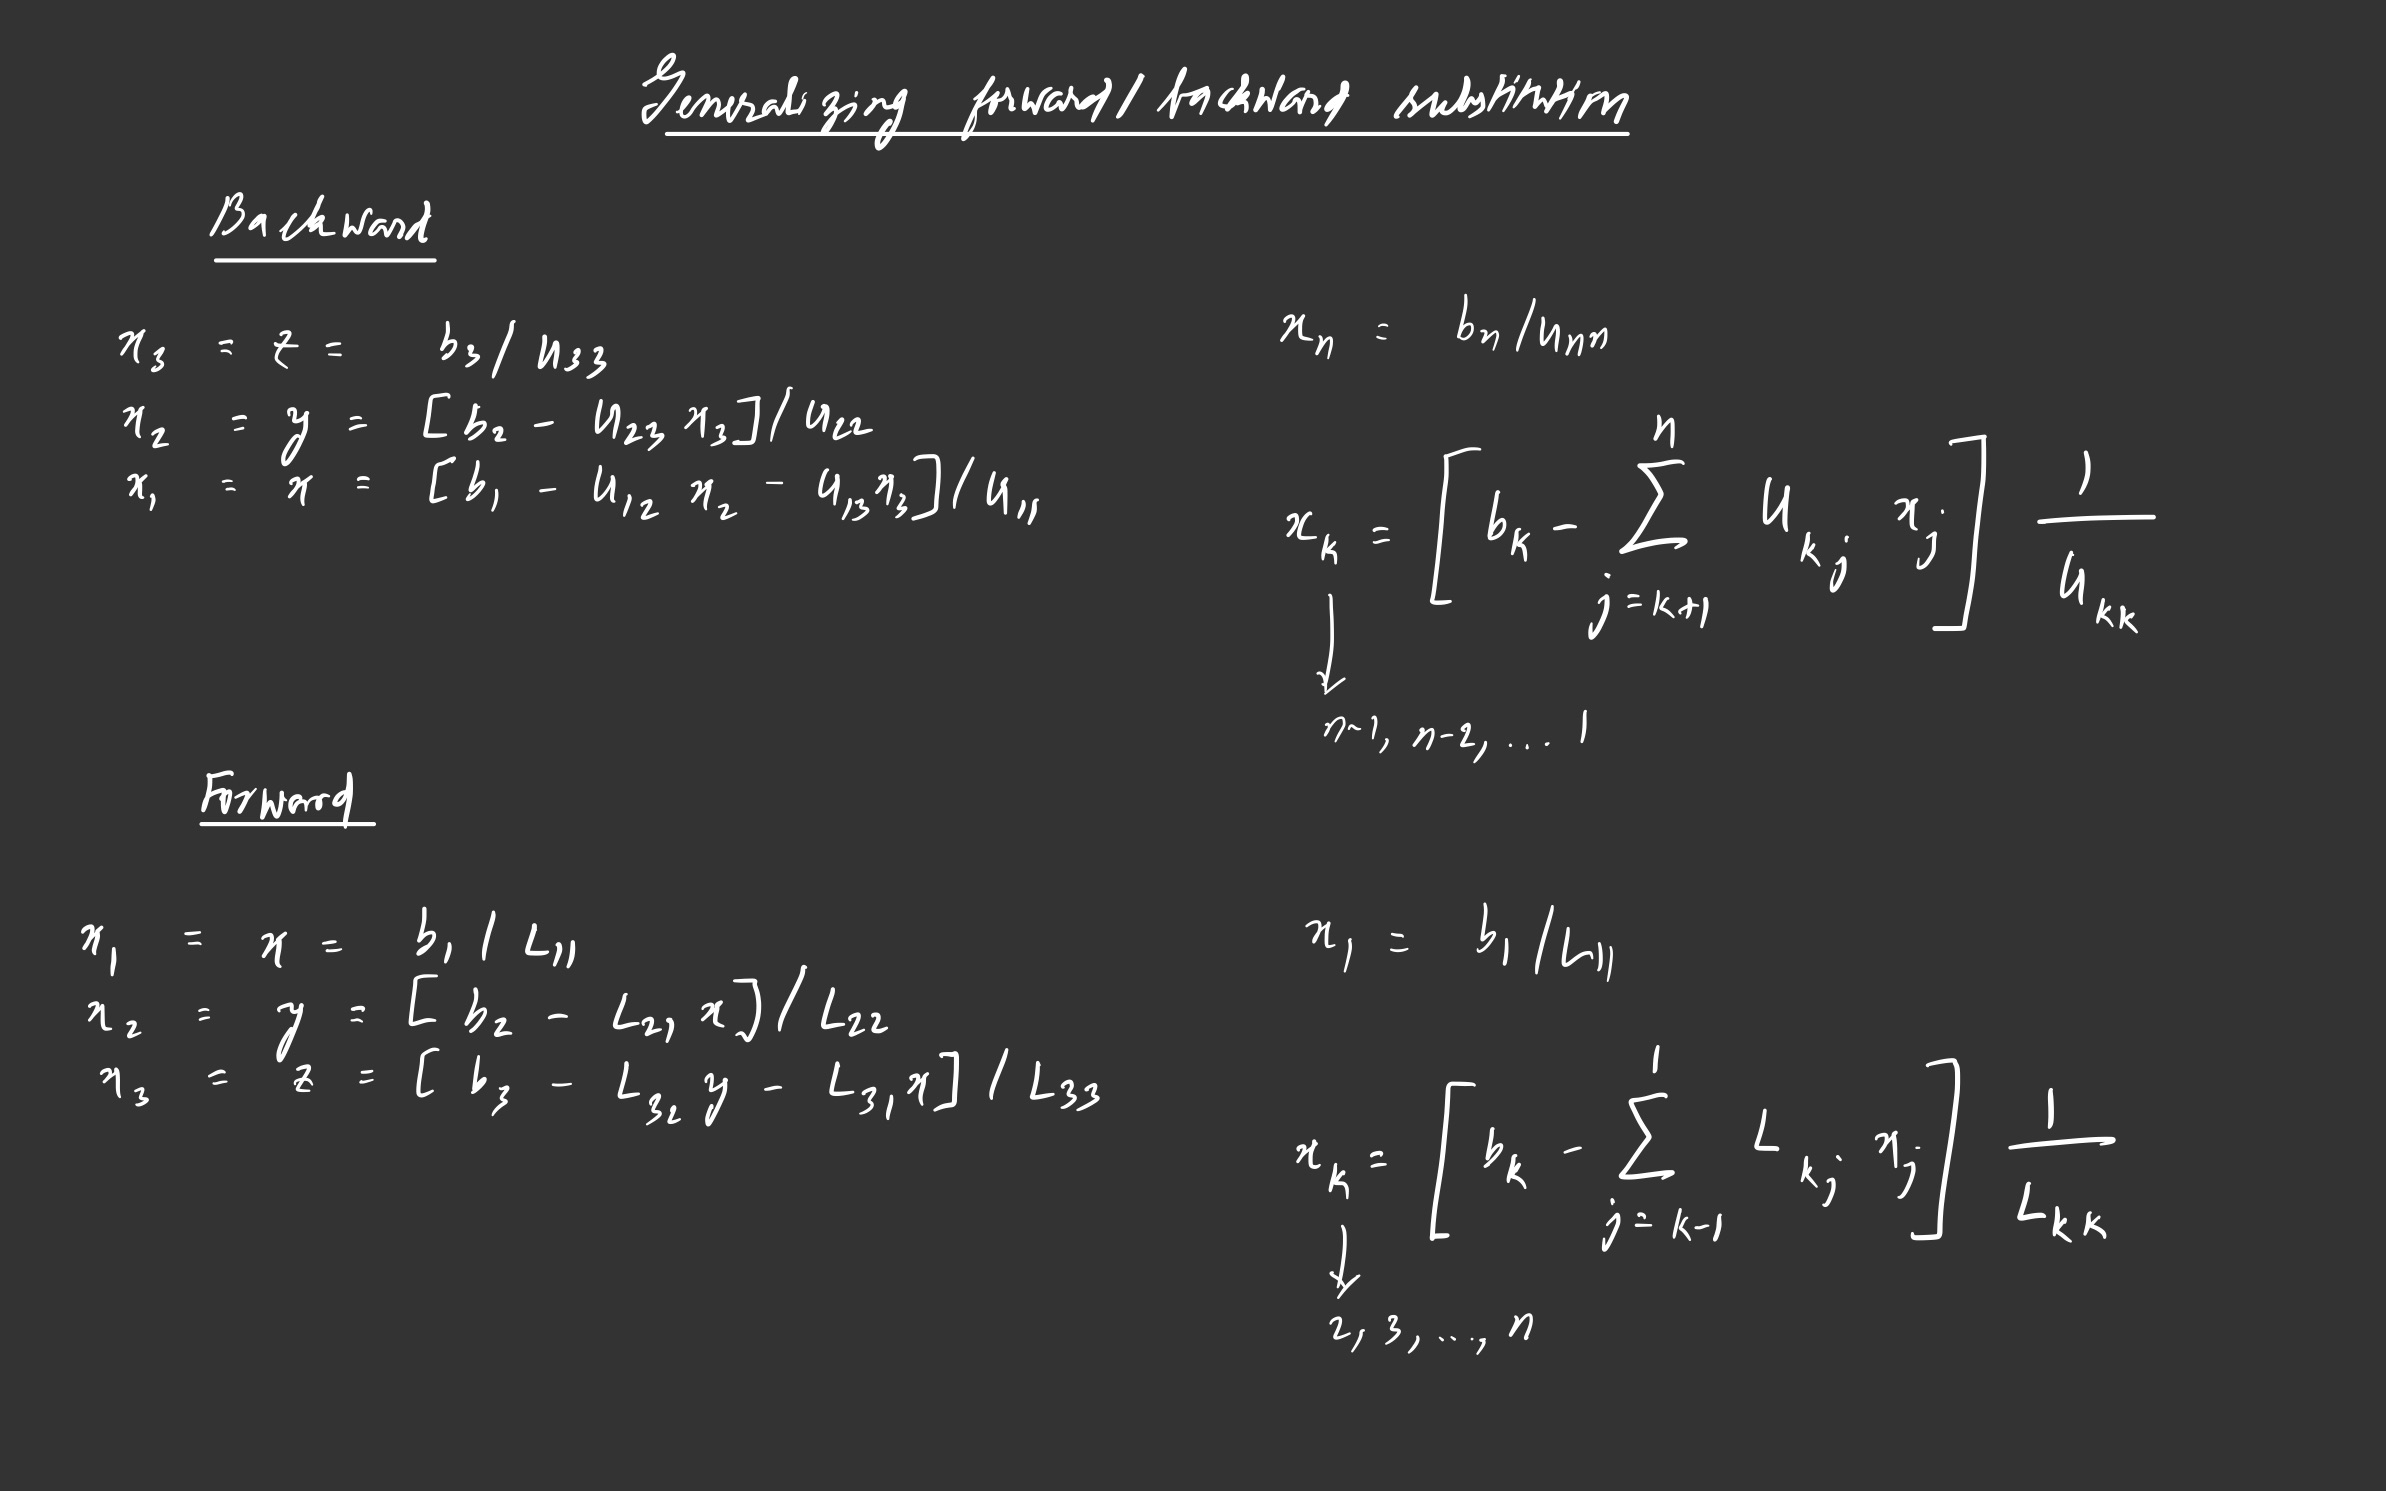 Generalizing forward/backward substitution
Backward
x₃ = z = b₃/u₃₃
x₂ = y = [b₂ - u₂₃ x₃]/u₂₂
x₁ = x = [b₁ - u₁₂ x₂ - u₁₃x₃]/u₁₁
xₙ = bₙ/uₙₙ
x_k = [b_k - ∑_{j=k+1}^{n} u_{kj} x_j] 1/u_{kk}
n-1, n-2, ... 1
Forward
x₁ = x = b₁/L₁₁
x₂ = y = [b₂ - L₂₁ x]/L₂₂
x₃ = z = [b₃ - L₃₂ y - L₃₁x]/L₃₃
x₁ = b₁/L₁₁
x_k = [b_k - ∑_{j=k-1}^{1} L_{kj} x_j] 1/L_{kk}
2, 3, ..., n